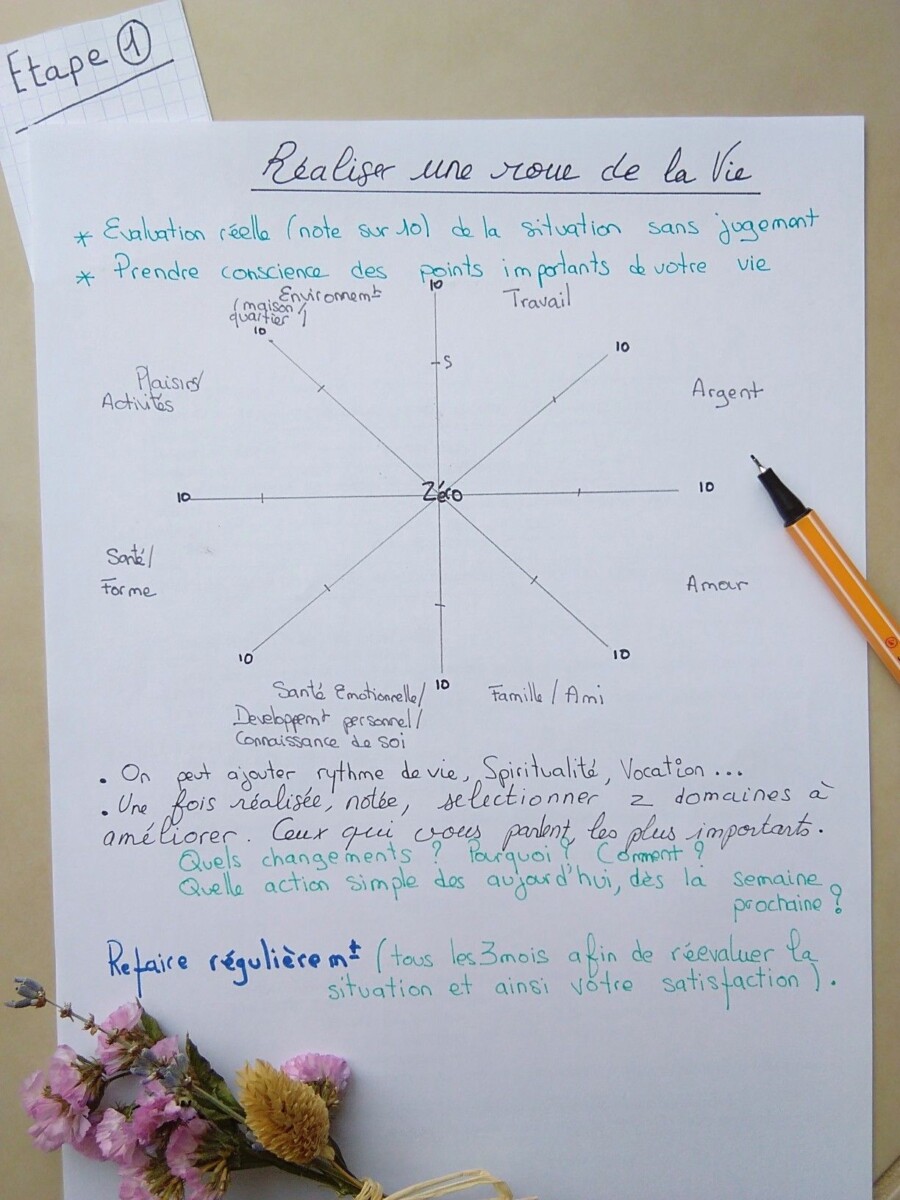 Etape 1
Réaliser une roue de la Vie
* Evaluation réelle (note sur 10) de la situation sans jugement
* Prendre conscience des points importants de votre vie
Environnemt
(maison/
quartier)
10
10
Travail
10
5
Plaisirs/
Activités
Argent
10
Zéro
10
Santé/
Forme
Amour
10
10
10
Santé Emotionnelle/
Developpemt personnel/
Connaissance de soi
Famille / Ami
• On peut ajouter rythme de vie, Spiritualité, Vocation ...
• Une fois réalisée, notée, selectionner 2 domaines à
améliorer. Ceux qui vous parlent, les plus importants.
Quels changements ? Pourquoi ? Comment ?
Quelle action simple des aujourd'hui, dès la semaine
prochaine ?
Refaire régulièremt (tous les 3 mois afin de réevaluer la
situation et ainsi votre satisfaction).